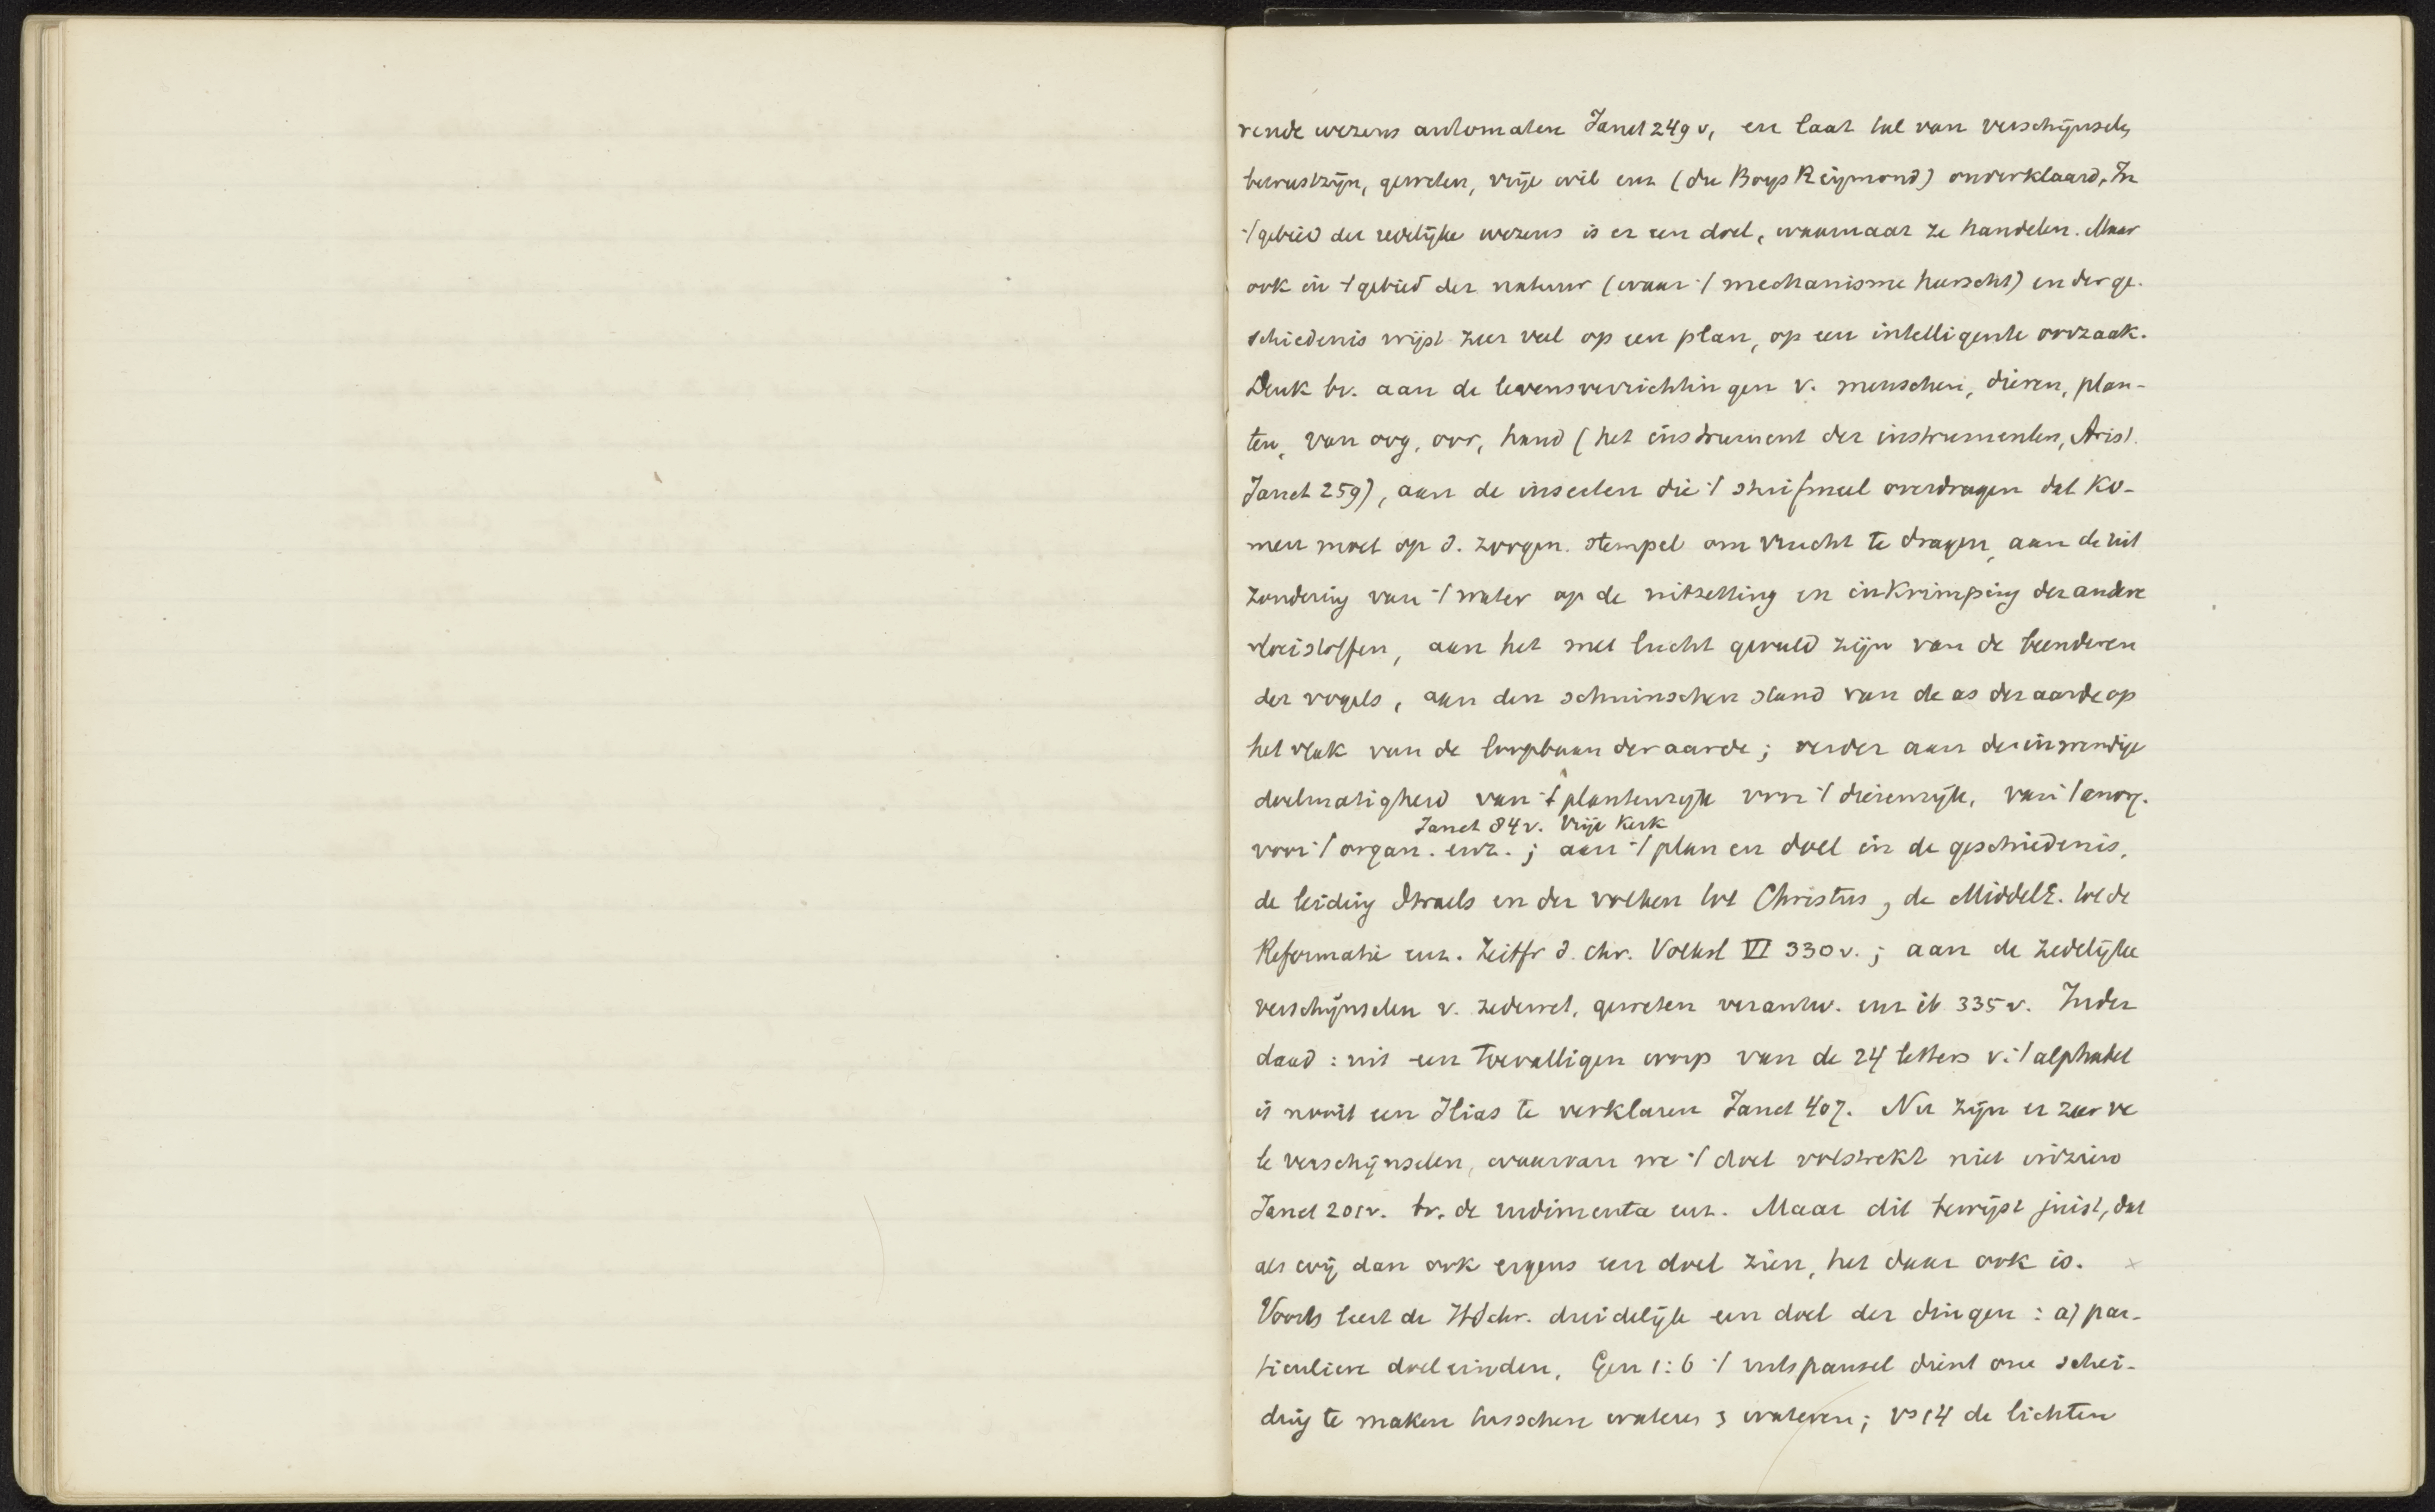 rende wezens automaten Janet 249 v, en laat tal van verschijnselen
bewustzijn, geweten, vrije wil enz (du Boys Reijmond) onverklaard. In
't gebied der redelijke wezens is er een doel, waarnaar ze handelen. Maar
ook in 't gebied der natuur (waar 't mechanisme heerscht) en der ge-
schiedenis wijst zeer veel op een plan, op een intelligente oorzaak.
Denk bv. aan de levensverrichtingen v. menschen, dieren, plan-
ten, van oog, oor, hand (het instrument der instrumenten, Arist.
Janet 259), aan de insecten die 't stuifmeel overdragen dat ko-
men moet op d. zoogen. stempel om vrucht te dragen, aan de uit
zondering van 't water op de uitzetting en inkrimping der andere
vloeistoffen, aan het met lucht gevuld zijn van de beenderen
der vogels, aan den schuinschen stand van de as der aarde op
het vlak van de loopbaan der aarde; verder aan de inwendige
doelmatigheid van 't plantenrijk voor 't dierenrijk, van 't anorg.
Janet 84 v. Vrije Kerk
voor 't organ. enz.; aan 't plan en doel in de geschiedenis,
de leiding Israels en der volken tot Christus, de MiddelE. tot de
Reformatie enz. Zeitfr d. chr. Volksl VI 330 v.; aan de zedelijke
verschijnselen v. zedewet, geweten verantw. enz ib 335 v. Inder
daad: uit een toevalligen worp van de 24 letters v. 't alphabet
is nooit een Ilias te verklaren Janet 407. Nu zijn er zeer ve
le verschijnselen, waarvan we 't doel volstrekt niet inzien
Janet 201 v. bv. de rudimenta enz. Maar dit bewijst juist, dat
als wij dan ook ergens een doel zien, het daar ook is. ×
Voorts leert de HSchr. duidelijk een doel der dingen: a) par-
ticuliere doeleinden, Gen 1:6 't uitspansel dient om schei-
ding te maken tusschen wateren & wateren; vs 14 de lichten